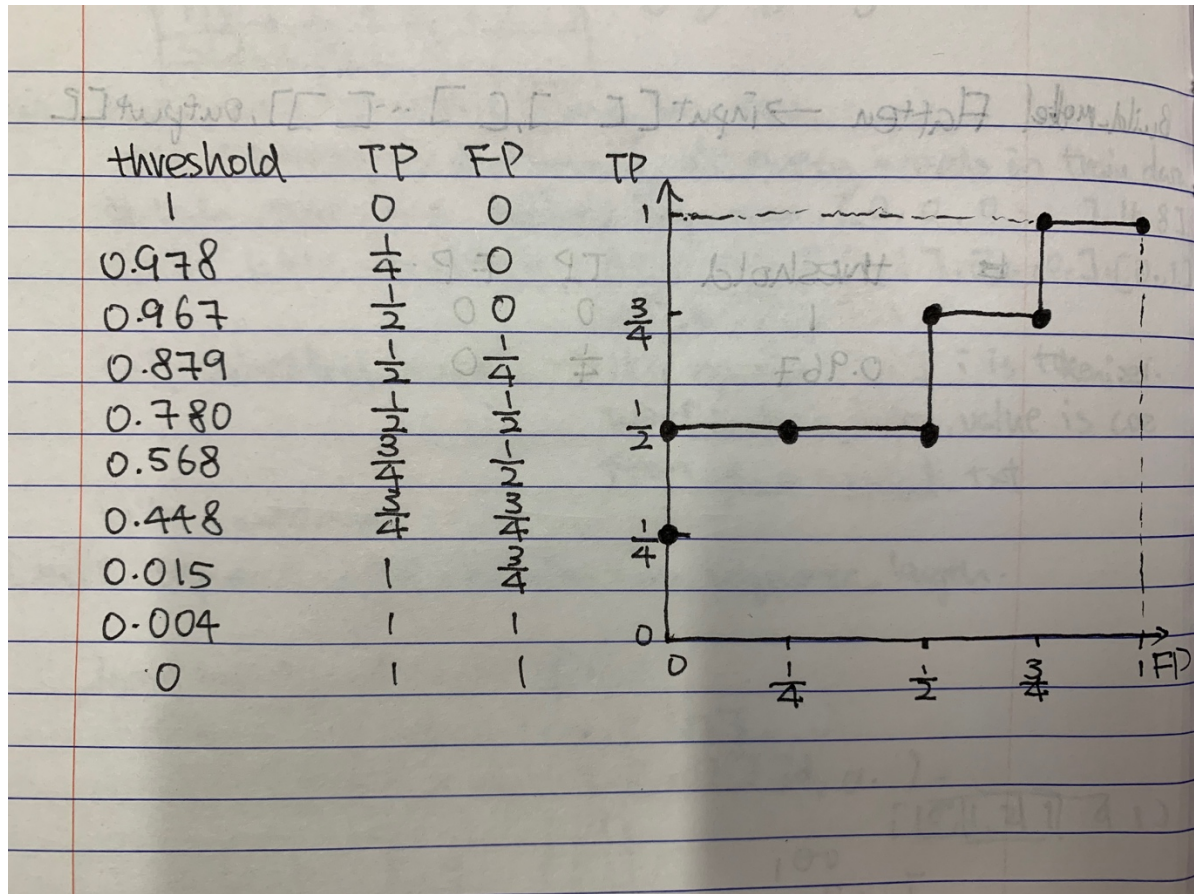 threshold TP FP
1 0 0
0.978 1/4 0
0.967 1/2 0
0.879 1/2 1/4
0.780 1/2 1/2
0.568 3/4 1/2
0.448 3/4 3/4
0.015 1 3/4
0.004 1 1
0 1 1
TP
1
3/4
1/2
1/4
0
0 1/4 1/2 3/4 1 FP